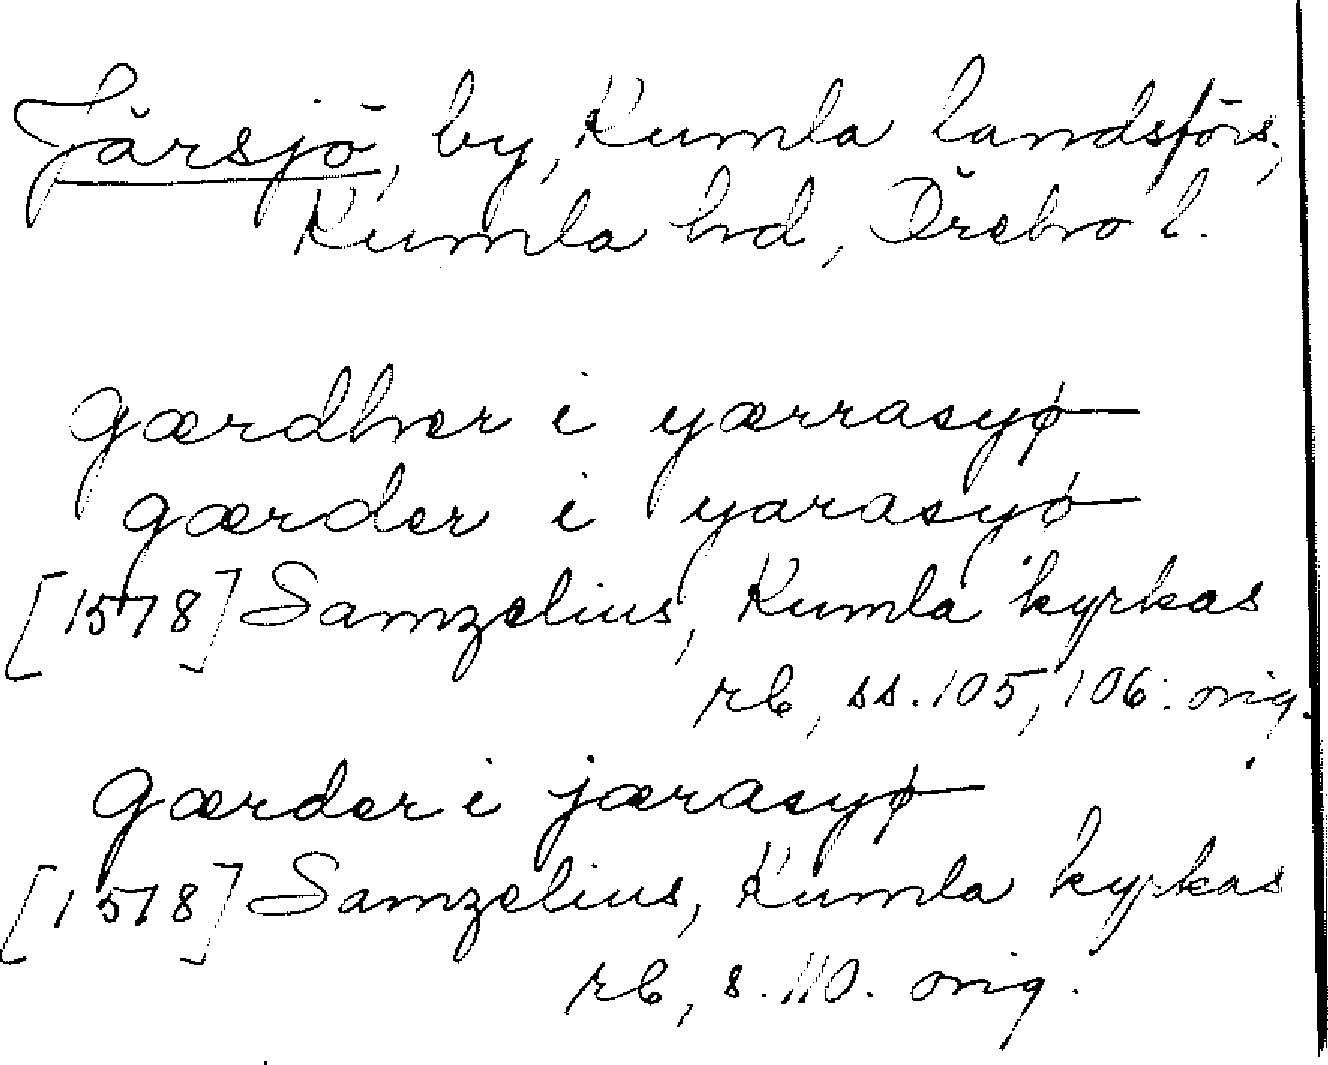 Järsjö, by, Kumla landsförs.,
Kumla hd, Örebro l.
gærdher i yærrasyø
gærder i yarasyø
[1578] Samzelius, Kumla kyrkas
rb, ss. 105, 106. orig.
gærder i jærasyø
[1578] Samzelius, Kumla kyrkas
rb, s. 110. orig.